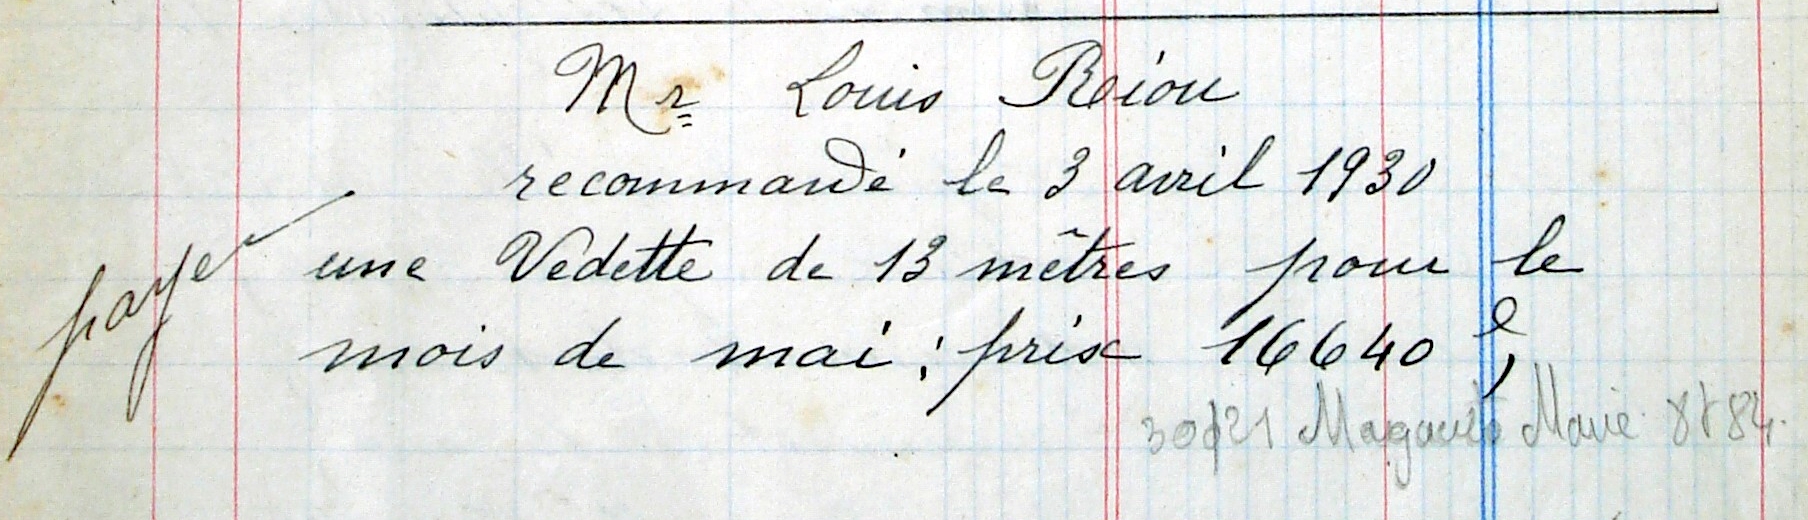 Mr Louis Reiou
recommandé le 3 avril 1930
payé
une Vedette de 13 mêtres pour le
mois de mai ; prix 16640 f,
Marie 8t84.